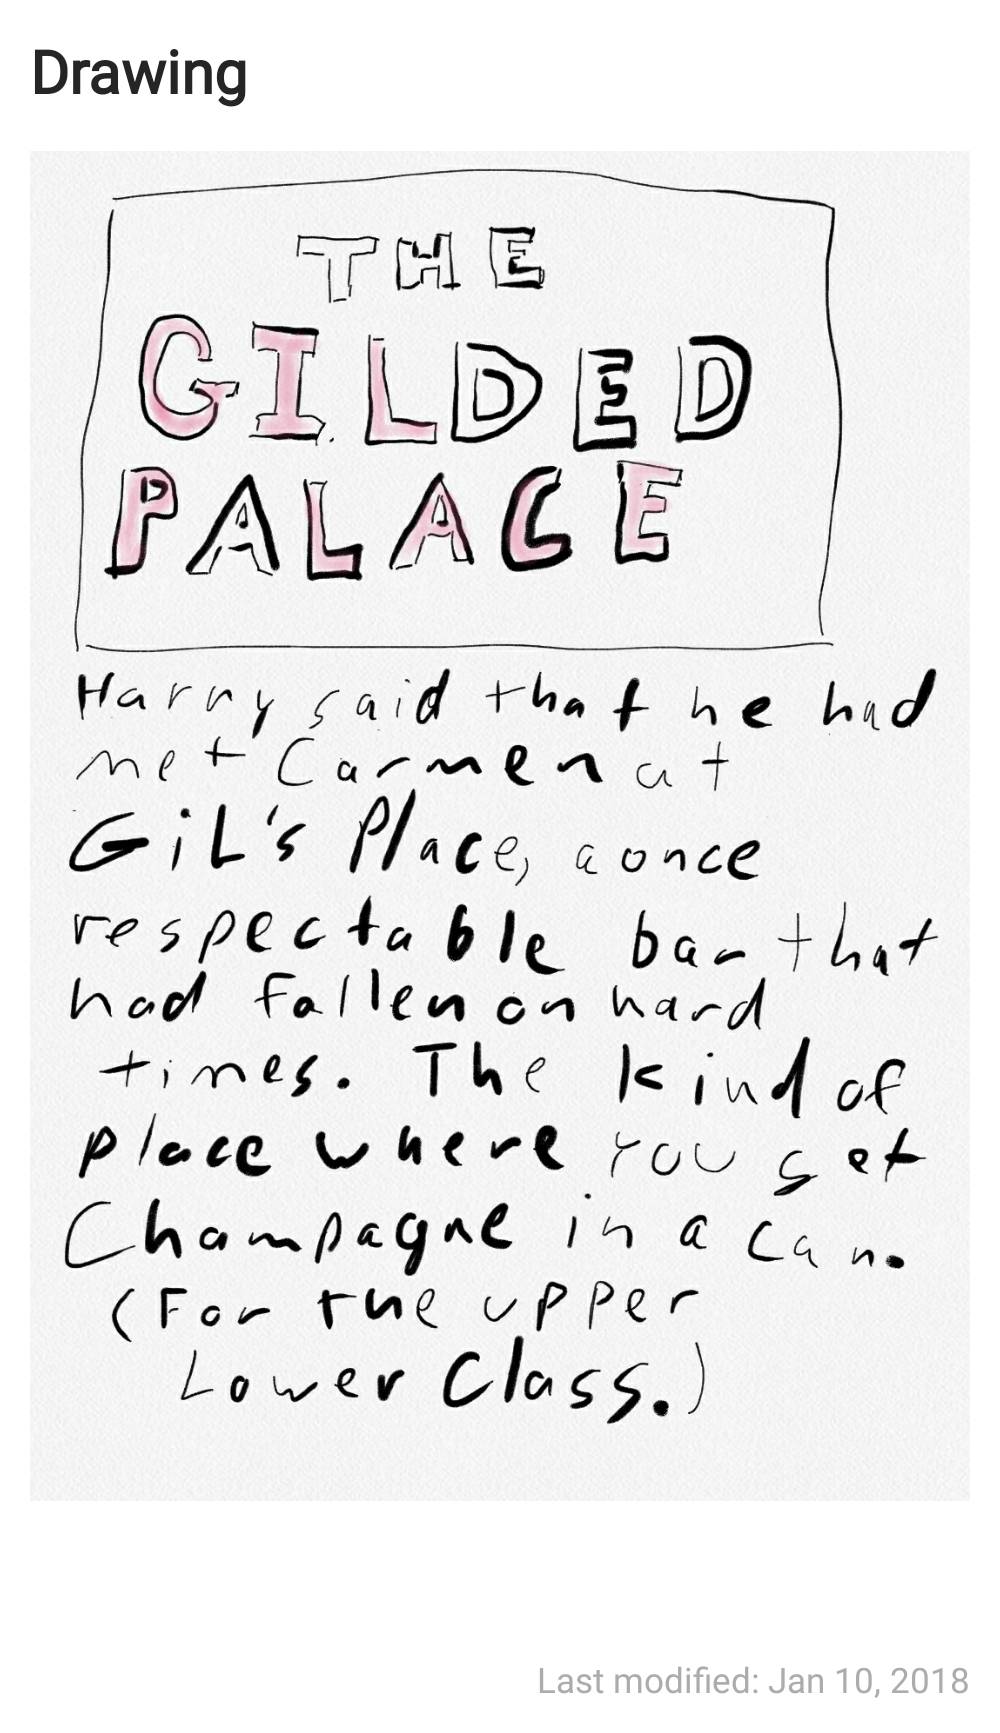 Drawing
THE
GILDED
PALACE
Harry said that he had
met Carmen at
GiL's Place, a once
respectable bar that
had fallen on hard
times. The kind of
place where you get
Champagne in a can.
(For the upper
Lower Class.)
Last modified: Jan 10, 2018